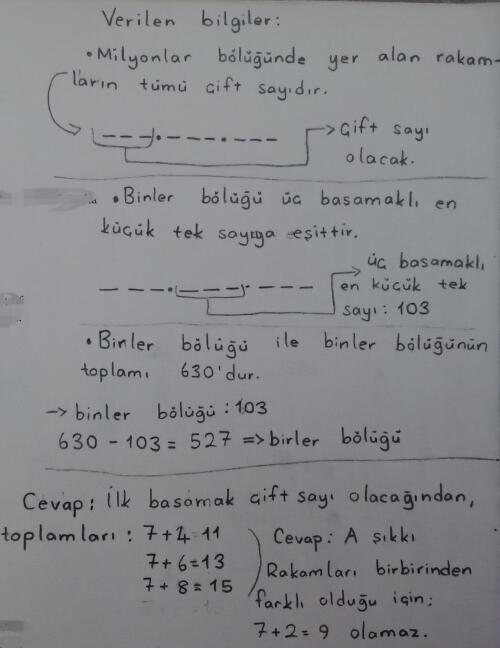 Verilen bilgiler:
• Milyonlar bölüğünde yer alan rakam-
ların tümü çift sayıdır.
_ _ _ . _ _ _ . _ _ _ → Çift sayı
olacak.
• Binler bölüğü üç basamaklı en
küçük tek sayıya eşittir.
üç basamaklı,
_ _ _ . _ _ _ . _ _ _ en küçük tek
sayı: 103
• Binler bölüğü ile binler bölüğünün
toplamı 630'dur.
→ binler bölüğü : 103
630 - 103 = 527 => birler bölüğü
Cevap: İlk basamak çift sayı olacağından,
toplamları : 7+4=11
7+6=13
7+8=15
Cevap: A şıkkı
Rakamları birbirinden
farklı olduğu için:
7+2=9 olamaz.